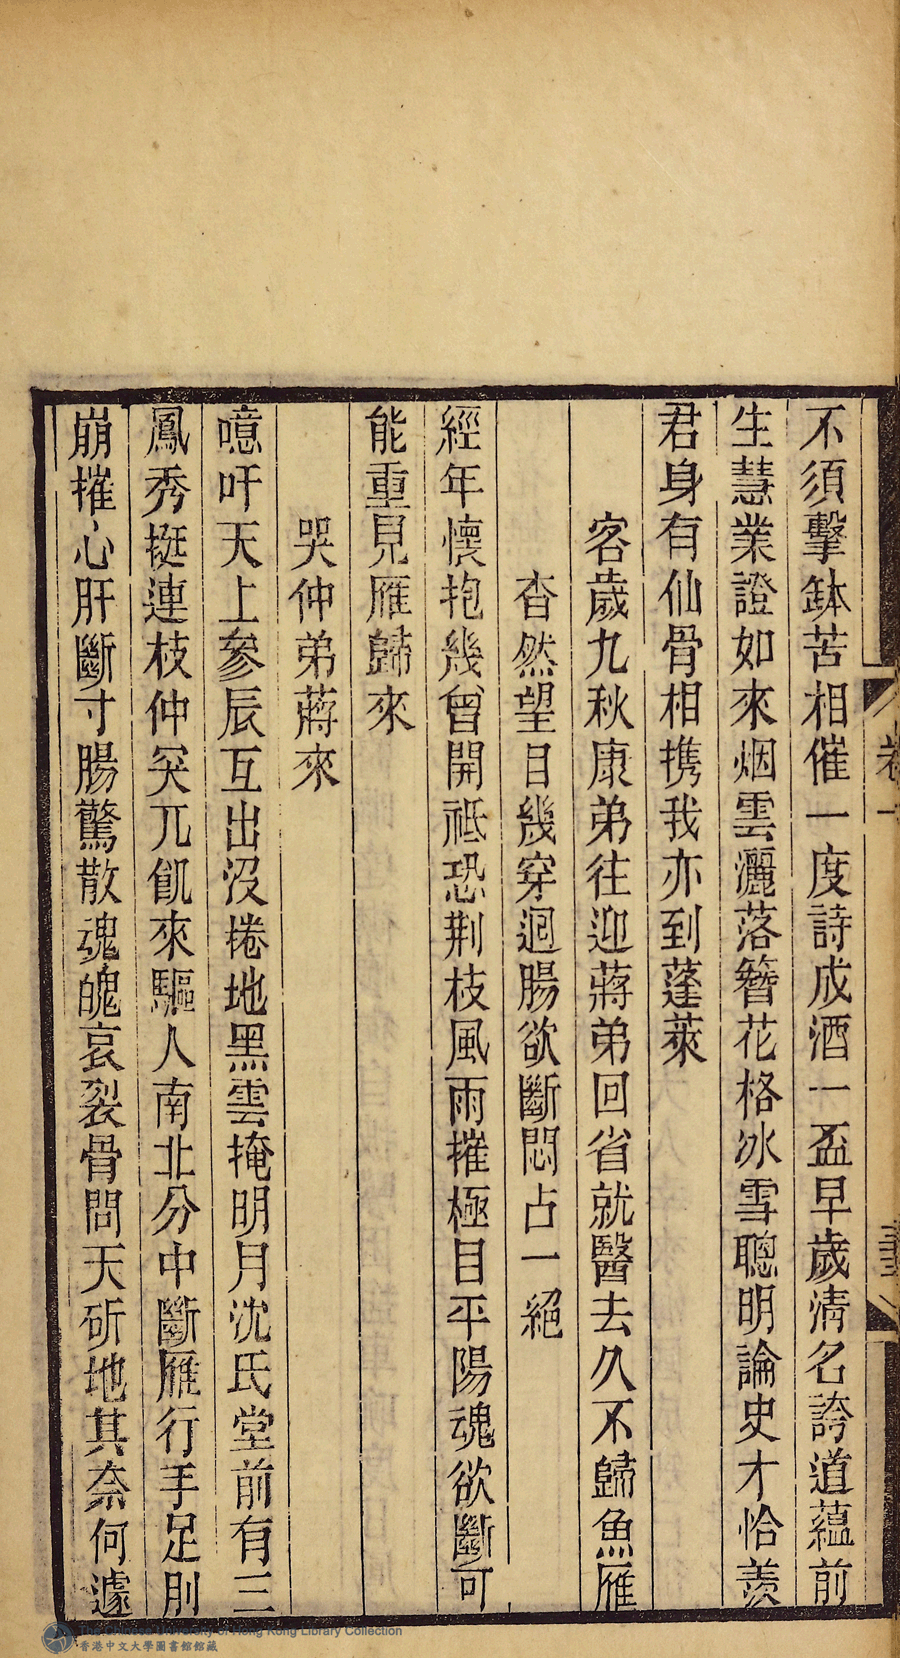 不須擊鉢苦相催一度詩成酒一盃早歲清名誇道蘊前
生慧業證如來烟雲灑落簪花格冰雪聰明論史才恰羨
君身有仙骨相携我亦到蓬萊
客歲九秋康弟往迎蔣弟回省就醫去久不歸魚雁
杳然望目幾穿迴腸欲斷悶占一絕
經年懷抱幾曾開祗恐荆枝風雨摧極目平陽魂欲斷可
能重見雁歸來
哭仲弟蔣來
噫吁天上參辰互出沒捲地黑雲掩明月沈氏堂前有三
鳳秀挺連枝仲突兀飢來驅人南北分中斷雁行手足刖
崩摧心肝斷寸腸驚散魂魄哀裂骨問天斫地其奈何遽
卷一
The Chinese University of Hong Kong Library Collection
香港中文大學圖書館館藏